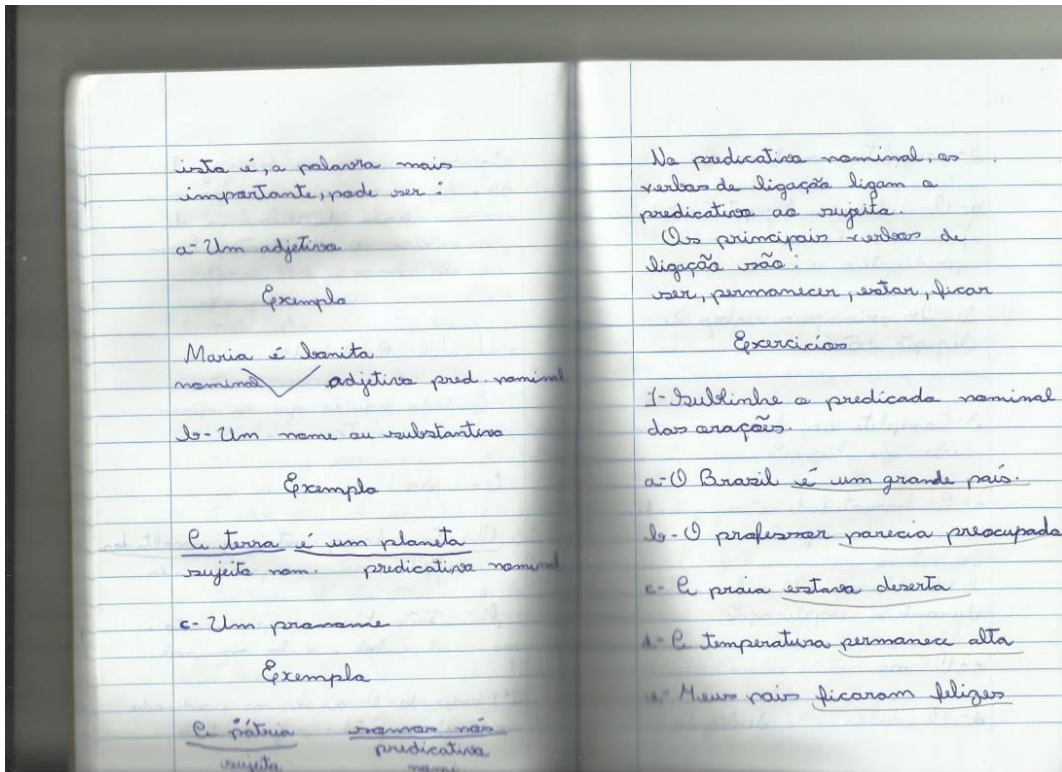 isto é, a palavra mais
importante, pode ser:
a- Um adjetivo
Exemplo
Maria é bonita
nominal adjetivo pred. nominal
b- Um nome ou substantivo
Exemplo
A terra é um planeta
sujeito nom. predicativo nominal
c- Um pronome
Exemplo
A pátria somos nós
sujeito predicativo
nomi
No predicativo nominal, os
verbos de ligação ligam o
predicativo ao sujeito.
Os principais verbos de
ligação são:
ser, permanecer, estar, ficar
Exercícios
1- Sublinhe o predicado nominal
das orações.
a- O Brazil é um grande país.
b- O professor parecia preocupado
c- A praia estava deserta
d- A temperatura permanece alta
e- Meus pais ficaram felizes